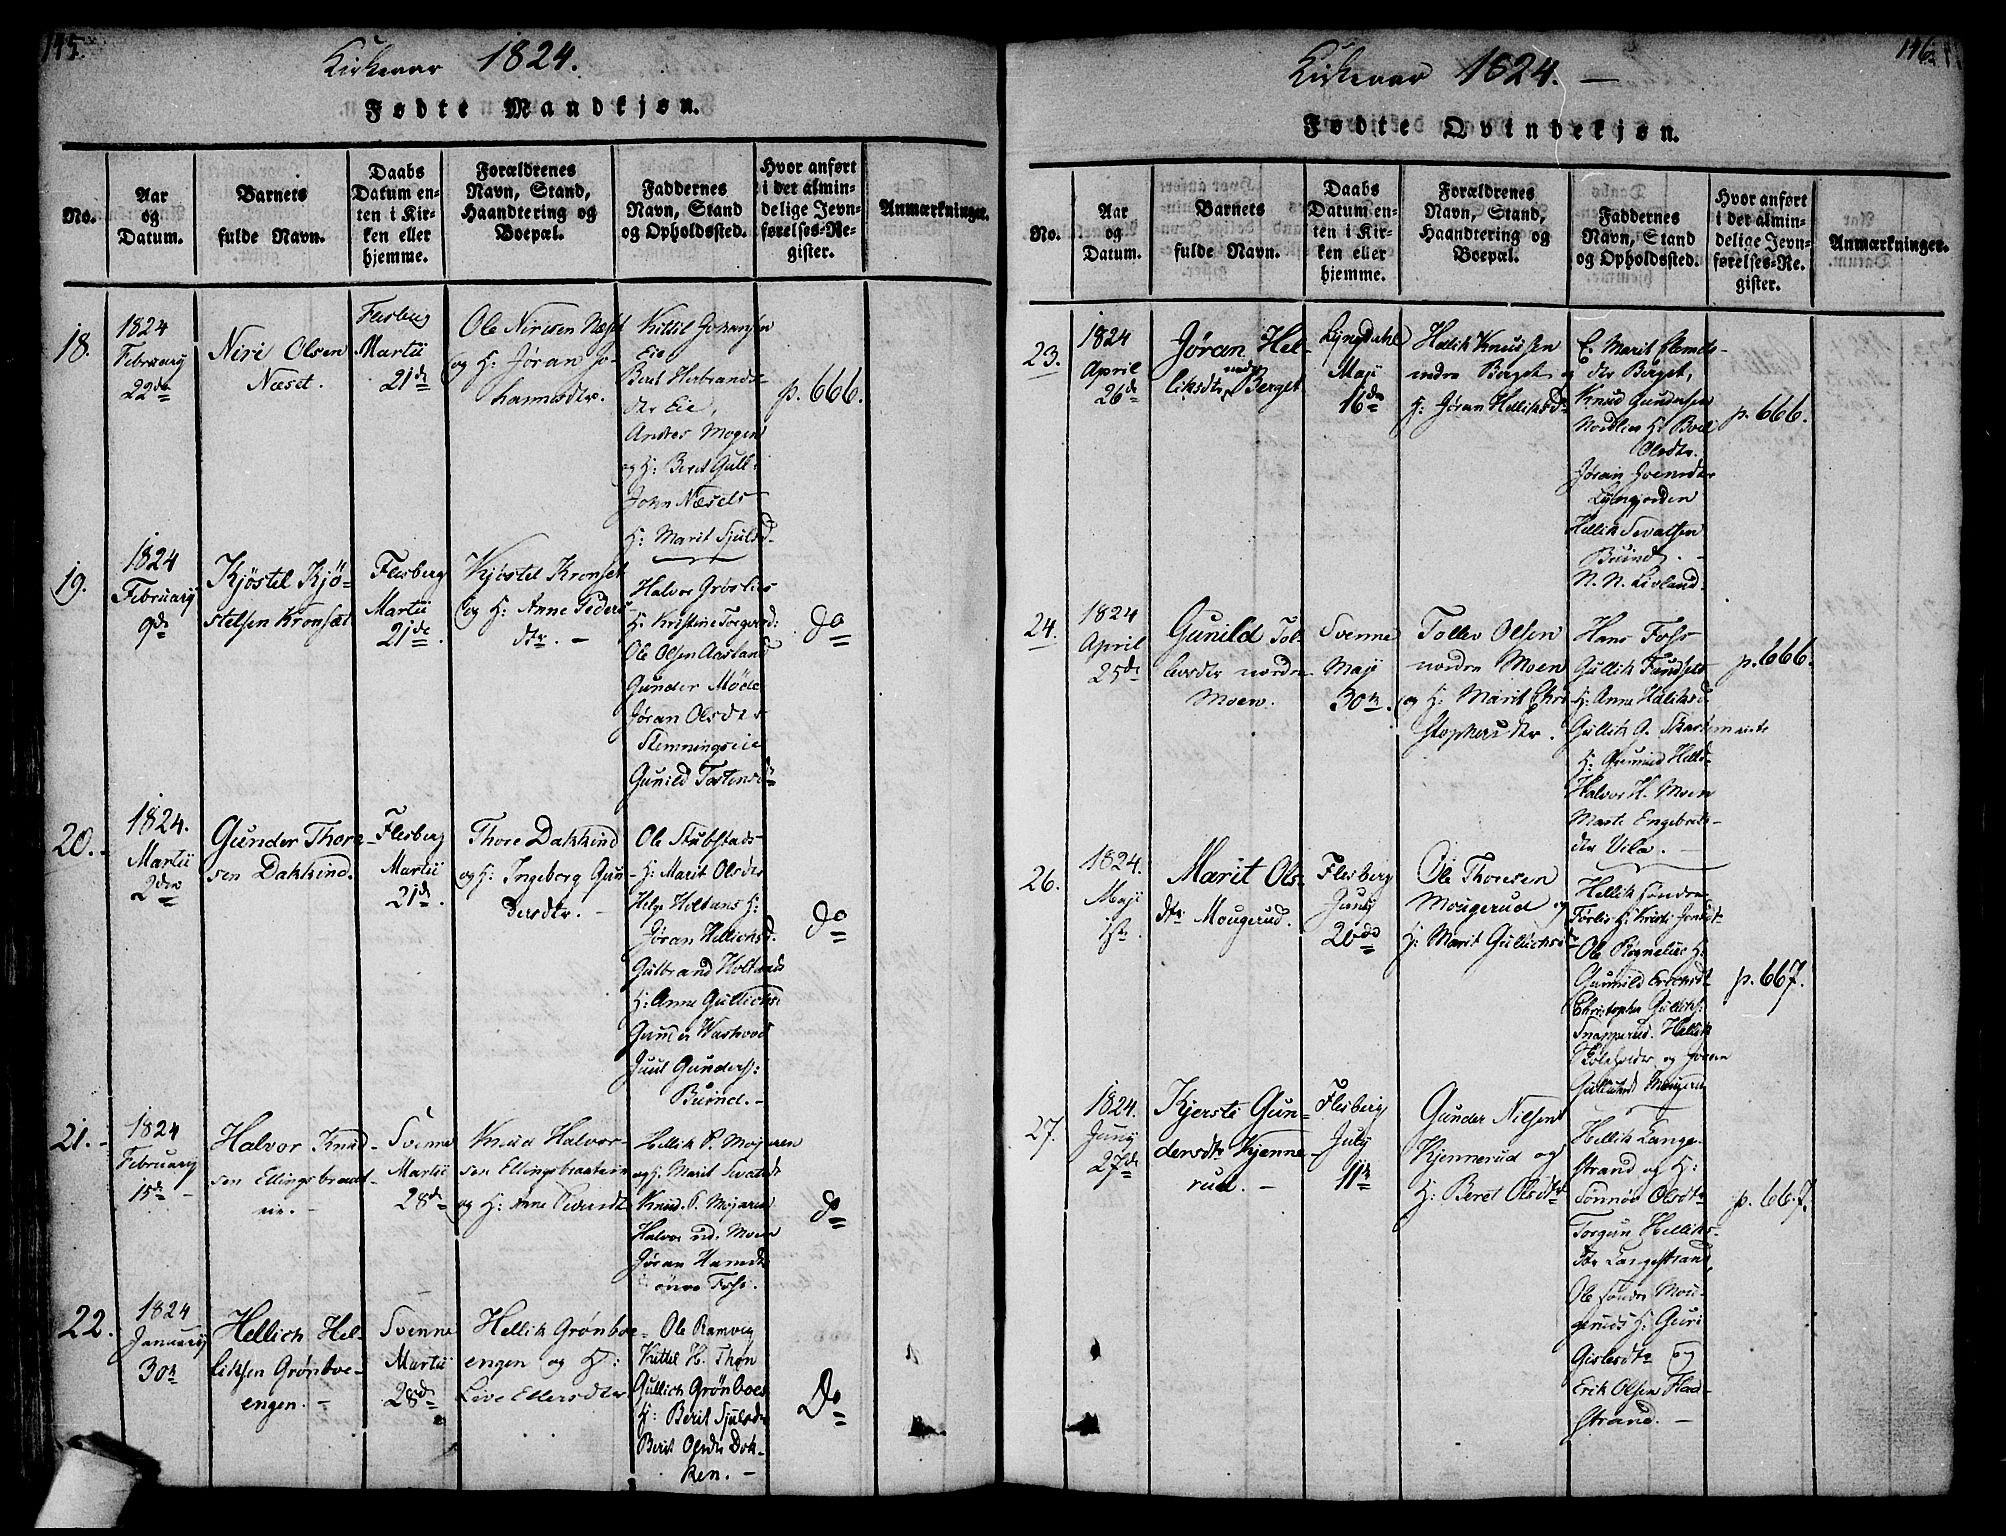 145.
Kirkeaar 1824.
Fødte Mandkjøn.
No.
Aar
og
Datum.
Barnets
fulde Navn.
Daabs
Datum en-
ten i Kir-
ken eller
hjemme.
Forældrenes
Navn, Stand,
Haandtering og
Boepæl.
Faddernes
Navn, Stand
og Opholdssted.
Hvor anført
i det almin-
delige Jevn-
førelses-Re-
gister.
Anmærkninger.
18.
1824
Februarij
22de
Niri Olsen
Næset.
Flesberg
Martii
21de
Ole Nirisen Næset
og H: Jøran Jo-
hannesdtr.
Kittil Johansen
Eie
Berit Herbrands-
dtr Eie,
Anders Mogen
og H: Berit Gull-
John Næsets
H: Marit Sjulsd
p. 666.
19.
1824
Februarij
9de
Kjøstel Kjø-
stelsen Kronset
Flesberg
Martii
21de
Kjøstel Kronset
og H: Anne Peders-
dtr. -
Halvor Grøslies
H: Kristine
Ole Olsen Aasland
Gunder Møde
Jøran Olsdtr
Stemningseie
Gunild Tostensd
do
20.
1824.
Martii
2den
Gunder Thore-
sen Dakkind.
Flesberg
Martii
21de.
Thore Dakkind
og H: Ingeborg Gun-
dersdtr. -
Ole Stubstads-
H: Marit Olsdtr
Helge Holtans H:
Jøran Hellichsd.
Gulbrand Holtans
H: Anne Gullichs
Gunder
Juul Gunders:
Buind. -
do
21.-
1824
Februarij
15de -
Halvor Knud-
sen Ellingsbraat-
eie. -
Svenne
Martii
28de
Knud Halvor-
sen Ellingsbraateeie
og H: Anne
Hellik P. Mojaren
og H: Marit
Knud P. Mojaren
Halvor nd. Moen
Jøran
Foss.
do
22.
1824
Januarij
30te
Hellich Hel-
liksen Grønboe-
engen. -
Svenne
Martii
28de
Hellik Grønboe-
engen og H:
Live Ellersdtr
Ole Ramvig
Kittel H. Thon
Gullich Grønboes
H: Berit Sjulsdr
Berit Olsdtr Dok-
ken. -
Do
146.
Kirkeaar 1824. -
Fødte Qvindekjøn.
No.
Aar
og
Datum.
Barnets
fulde Navn.
Daabs
Datum en-
ten i Kir-
ken eller
hjemme.
Forældrenes
Navn, Stand,
Haandtering og
Boepæl.
Faddernes
Navn, Stand
og Opholdssted.
Hvor anført
i det almin-
delige Jevn-
førelses-Re-
gister.
Anmærkninger.
23.
1824
April
26de
Jøran Hel-
liksdtr nedre Berget
Lyngdahl
Maji
16de
Hellik Knudsen
nedre Berget og
H: Jøran Helliksd
E. Marit
dtr Berget,
Knud Gundersen
Nordlien H: Boel
Olsdtr.
Jøran Svensdtr
Hellik Sevatsen
Buind. -
N. N. Livland.
p. 666.
24.
1824
April
25de
Gunild Tol-
levsdtr nordre
Moen.
Svenne
Maji
30te.
Tollev Olsen
nordre Moen
og H. Marit Chri-
stophersdtr.
Hans Foss
Gullik
H: Anne Helliksd
Gullik A.
H:
Halvor H. Moen
Marte Engebrets-
dtr Vila. -
p. 666.
26.
1824.
Maji
1ste.
Marit Ols-
dtr Mougerud.
Flesberg
Juny
20de
Ole Thoresen
Mougerud og
H: Marit Gullichsd
Hellik søndre
Førlis H: Kristi
Ole Rognelies H:
Gunnild Erichsdt
Christopher Gulliks:
Snapperud. Hellik
og Jøran
p. 667.
27.
1824.
Juny
27de
Kjersti Gun-
dersdtr Kjenne-
rud. -
Flesberg
July
11te
Gunder Nilsen
Kjennerud og
H: Beret Olsdtr
Hellik Lange-
strand og H:
Sønnøv Olsdtr
Torgun Helliks-
dtr Langestrand,
Ole søndre Mou-
geruds H: Guri
Gislesdtr og
Erik Olsen Flad-
strand. -
p. 667.